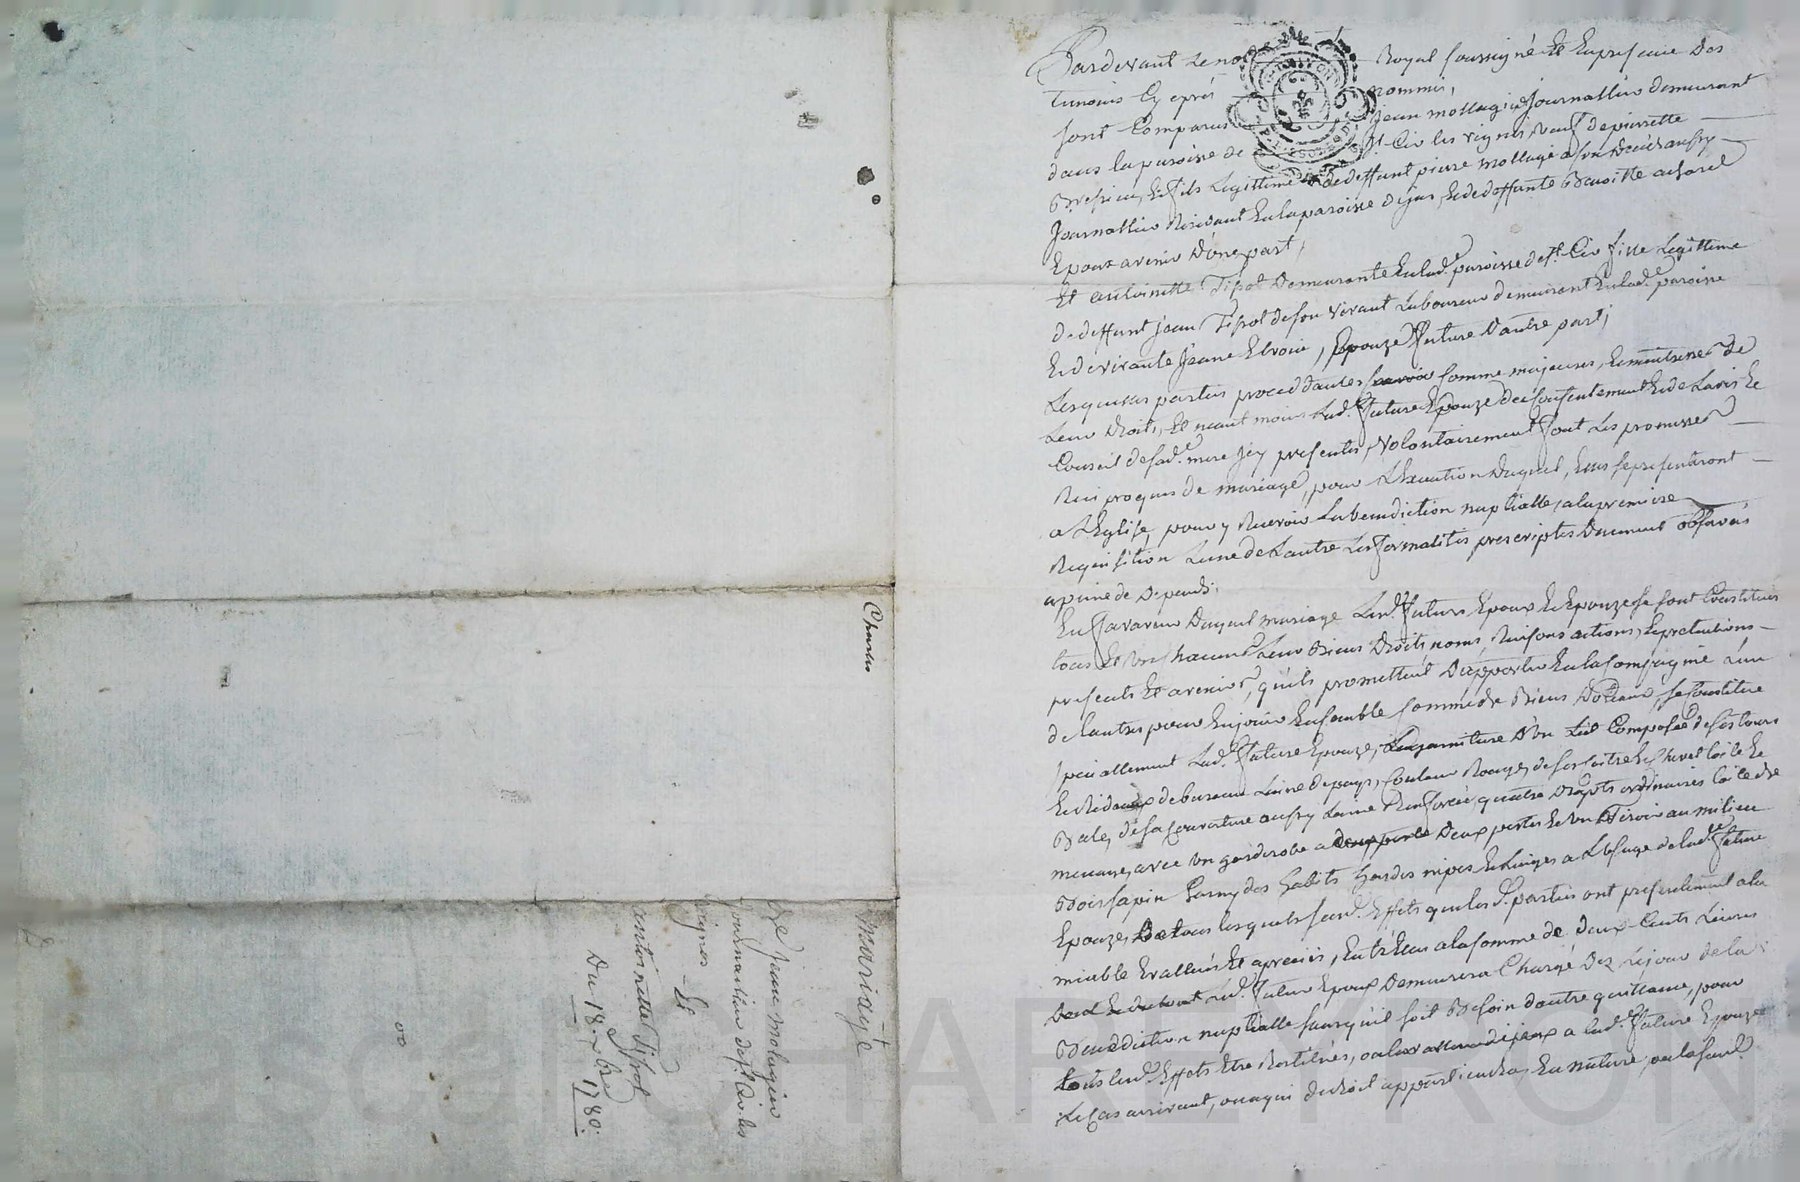 Pardevant Le not Royal soussigné Et En presence Des
Temoins Cy aprés nommés,
sont Comparus Jean mollagier Journallier demeurant
dans la paroisse de St. Cir les vignes, veuf de pierrette
Et fils Legittime de deffunt pierre mollagié a son Deces aussy
Journallier Residant En la paroisse et de deffunte Benoitte
Epoux avenir D'une part,
Et Antoinette Tissot Demeurante En lade. paroisse de St. Cir fille Legittime
de deffunt Jean Tissot de son vivant Laboureur demeurant En lade. paroisse
Et de vivante Jeane , Epouze future D'autre part,
Lesquelles parties proceddantes comme majeures, Et maitresses de
Leur Droits, Et neant moins Lad. future Epouze du consentement Et de L'avis Et
Conseil de sad. mere Icy presente, volontairement font Les promesses
Reciproques de mariage, pour L'Execution Duquel, Elles se presenteront
a L'Eglise, pour y Recevoir La benediction nuptialle, a la premiere
Requisition L'une de L'autre Les formalités prescriptes Duement observées
a peine de Depends.
En faveur Duquel mariage Lesd. futurs Epoux Et Epouze se sont Constitués
tous Et Un chacuns Leur Biens Droits, noms, Raisons actions, Et pretentions
presents Et avenir, qu'ils promettent D'apporter En la Compagnie L'un
de L'autre pour En jouir Ensemble comme de Biens Dotaux, se Constitue
speciallement Lad. future Epouze, La garniture D'un Lit Composée de ses tours
Et Rideaux de bureau Laine de pays, Couleur Rouge, de Et Chevet toile Et
Bale, de sa Couverture aussy Laine quatre Draps ordinaires toile de
menage, avec Un garderobe a Deux portes Et Un Tiroir au milieu
Bois sapin Garny des habits hardes nipes Et Linges a L'Usage de lade. future
Epouze, De tous lesquels Effets que lesd. parties ont presentement a la
mieable Evallués Et apreciés, Entr'Elles a la somme de Deux Cents Livres
Led. futur Epoux Demeurera Chargé Dez Le jour de la
Benediction nuptialle sans qu'il soit Besoin d'autre quittance, pour
tous lesd. Effets Etre Restitués, a lad. future Epouze
Le Cas arrivant, ou a qui de droit appartiendra, En nature, ou la susd.
Charles
mariage
De Jean molagier
Journallier de St. Cir les
vignes Et
antoinette Tissot
Du 18. xbre 1780.